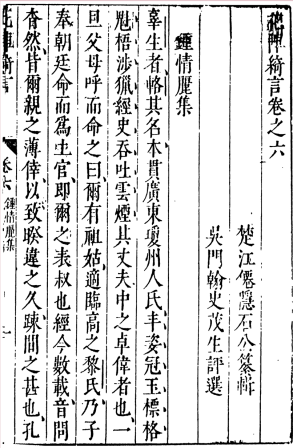 花陣綺言卷之六
楚江僊隱石公纂輯
吳門翰史茂生評選
鍾情麗集
辜生者輅其名本貫廣東瓊州人氏丰姿冠玉標格
魁梧涉獵經史吞吐雲煙其丈夫中之卓偉者也一
旦父母呼而命之曰爾有祖姑適臨高之黎氏乃子
奉朝廷命而爲土官即爾之表叔也經今數載音問
杳然皆爾親之薄倖以致睽違之久疎間之甚也孔
卷六
鍾情麗集
一